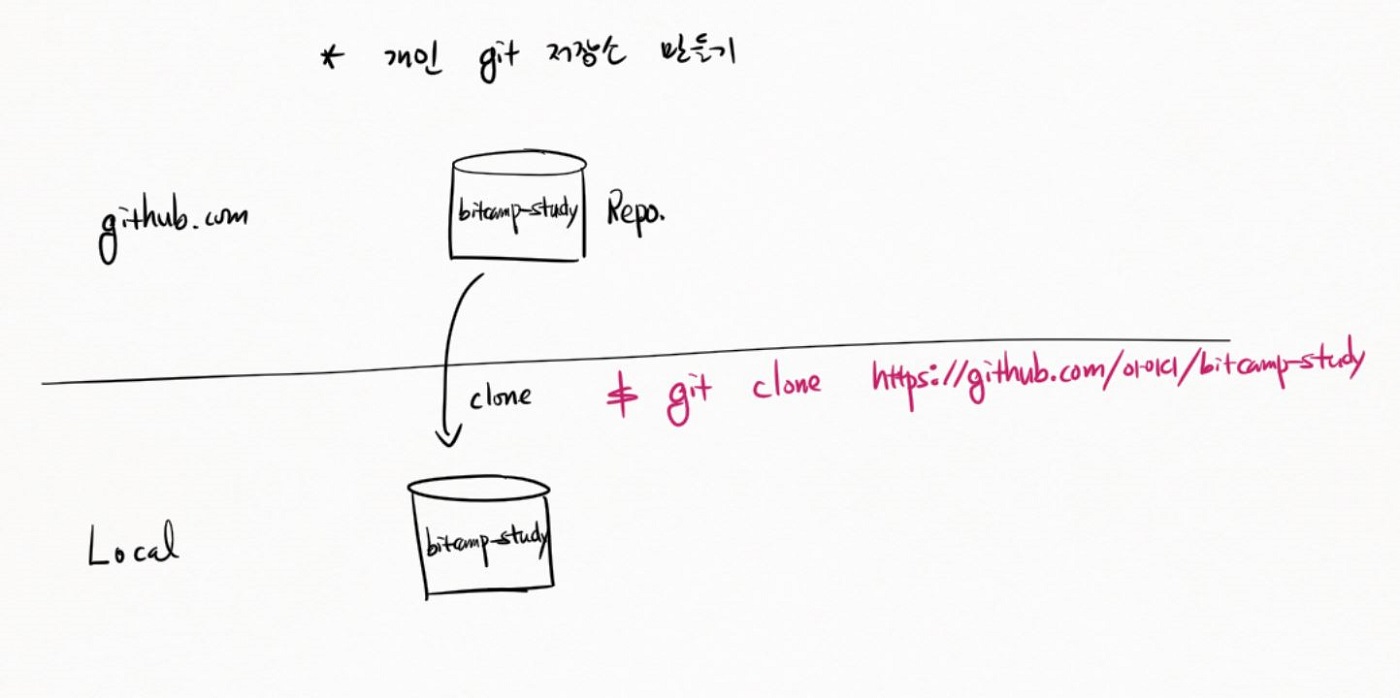 * 개인 git 저장소 만들기
bitcamp-study
Repo.
github.com
clone
$ git clone https://github.com/아이디/bitcamp-study
Local
bitcamp-study